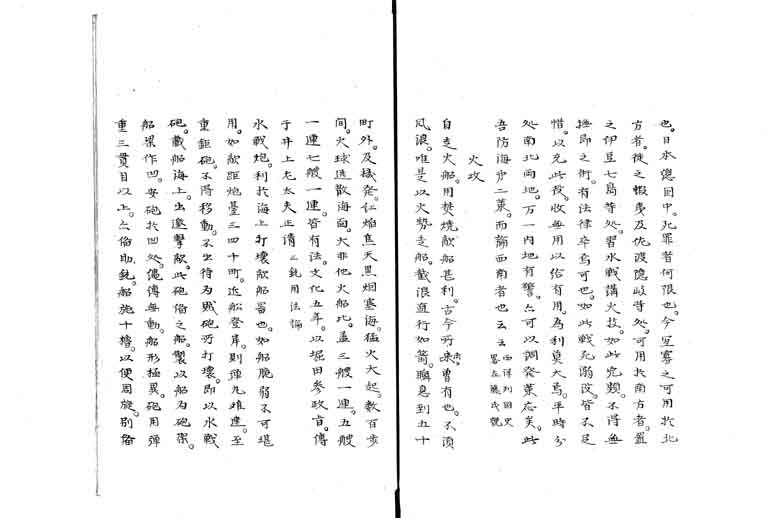 也。日本總國中。死罪者何限也。今宜寡之可用於北
方者。徙之蝦夷及佐渡隱岐等処。可用於南方者。置
之伊豆七島等処。習水戰講火技。如此完類。不得無
撫卹之術。有法律卒焉可也。如此戰死溺没。皆不足
惜。以充此役。收無用以給有用。為利莫大焉。平時分
処南北両地。万一内地有警。亦可以調發策応矣。此
吾防海第二策。而論西南者也云云
火攻
自走火船。用焚燒敵船甚利。古今所未曽有也。不須
風浪。唯是以火勢走船。截浪直行如箭。瞬息到五十
町外。及機発。仁焔焦天黒烟塞海。猛火大起。数百歩
間。火球迸散海面。大非他火船比。盖三艘一連。五艘
一連七艘一連。皆有法。文化五年。以堀田参政旨。傳
于井上左太夫正清
水戰炮。利於海上打壊敵船器也。如船脆弱不可堪
用。如敵距炮臺三四十町。近船登岸。則弾丸难達。至
重鉅砲。不得移動。不出待為賊砲所打壊。即以水戰
砲。載船海上。出邀擊敵。此砲偹之船。製以船為砲架。
船梁作凹。安砲於凹処。偹傳毎動。船形極異。砲用弾
重三貫目以上。亦偹助銃。船施十櫓。以便周旋。別偹